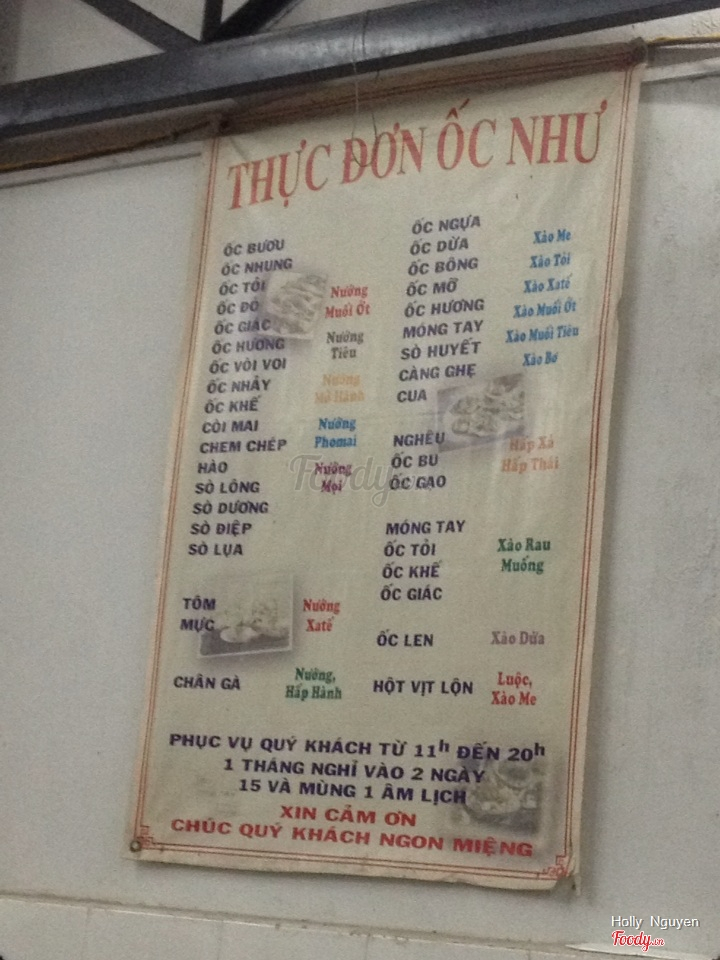 THỰC ĐƠN ỐC NHƯ
ỐC BƯƠU
ỐC NHUNG
ỐC TỎI
ỐC ĐỎ
ỐC GIÁC
ỐC HƯƠNG
ỐC VÒI VOI
ỐC NHẢY
ỐC KHẾ
CÒI MAI
CHEM CHÉP
HÀO
SÒ LÔNG
SÒ DƯƠNG
SÒ ĐIỆP
SÒ LỤA
Nướng
Muối Ớt
Nướng
Tiêu
Nướng
Mỡ Hành
Nướng
Phomai
Nướng
Mọi
TÔM
MỰC
Nướng
Xatế
CHÂN GÀ
Nướng,
Hấp Hành
ỐC NGỰA
ỐC DỪA
ỐC BÔNG
ỐC MỠ
ỐC HƯƠNG
MÓNG TAY
SÒ HUYẾT
CÀNG GHẸ
CUA
Xào Me
Xào Tỏi
Xào Xatế
Xào Muối Ớt
Xào Muối Tiêu
Xào Bơ
NGHÊU
ỐC BU
ỐC GẠO
Hấp Xả
Hấp Thái
MÓNG TAY
ỐC TỎI
ỐC KHẾ
ỐC GIÁC
Xào Rau
Muống
ỐC LEN
Xào Dừa
HỘT VỊT LỘN
Luộc,
Xào Me
PHỤC VỤ QUÝ KHÁCH TỪ 11h ĐẾN 20h
1 THÁNG NGHỈ VÀO 2 NGÀY
15 VÀ MÙNG 1 ÂM LỊCH
XIN CẢM ƠN
CHÚC QUÝ KHÁCH NGON MIỆNG
Foody.vn
Holly Nguyen
Foody.vn